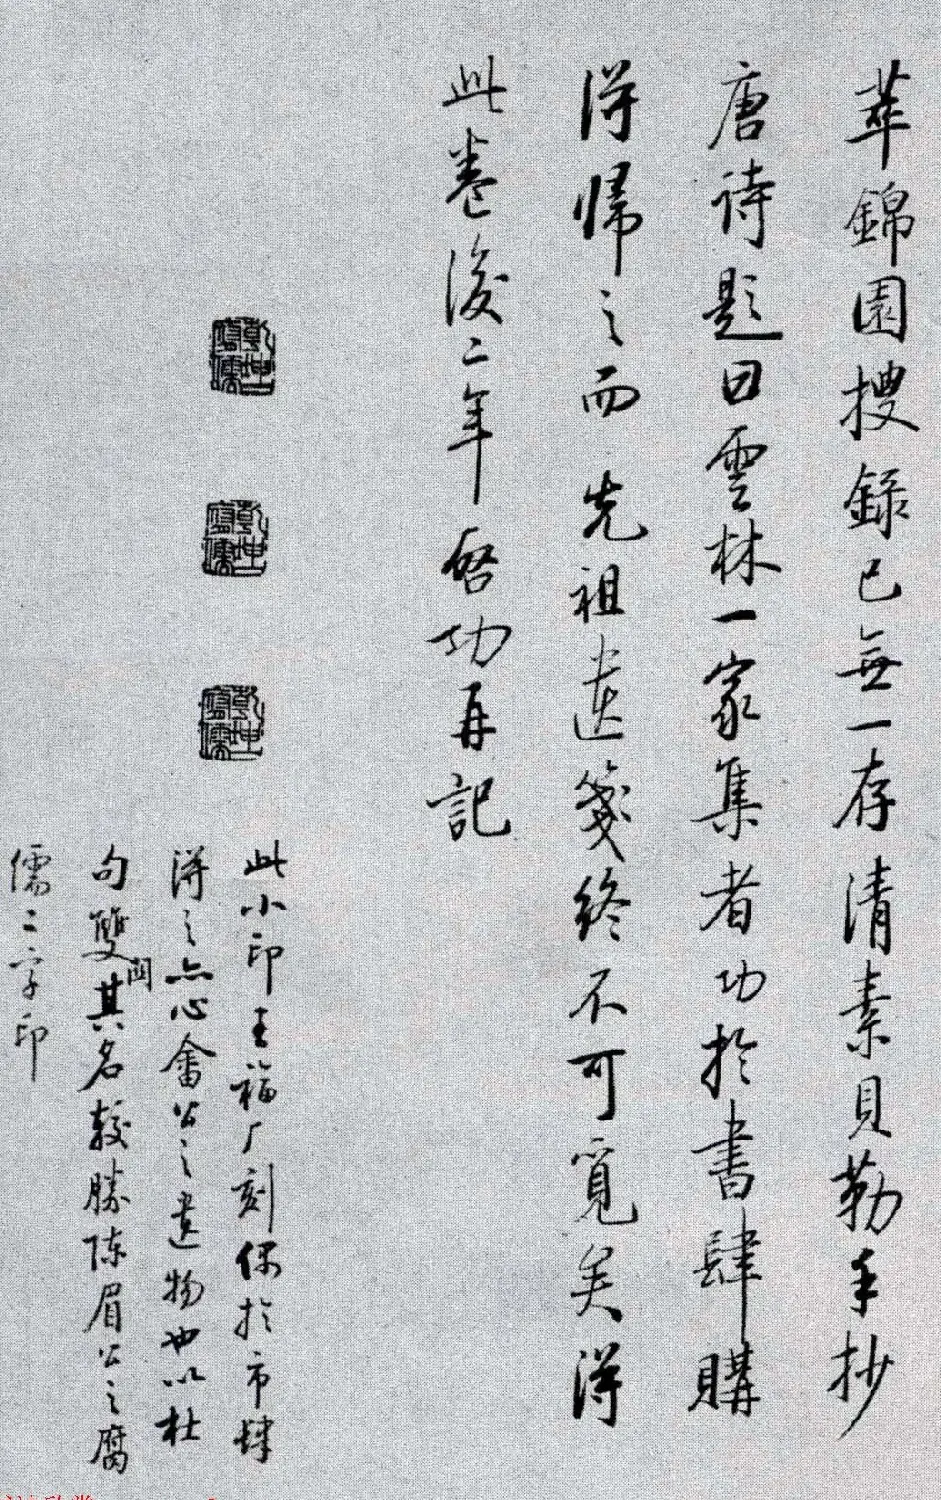 萃錦園搜錄已無一存清素貝勒手抄
唐詩題曰雲林一家集者功於書肆購
得歸之而先祖遺箋終不可覓矣得
此卷後二年啓功再記
乾坤腐儒
乾坤腐儒
乾坤腐儒
此小印王福厂刻偶於市肆
得之亦心畬公之遺物也以杜
句雙關其名較勝陳眉公之腐
儒二字印